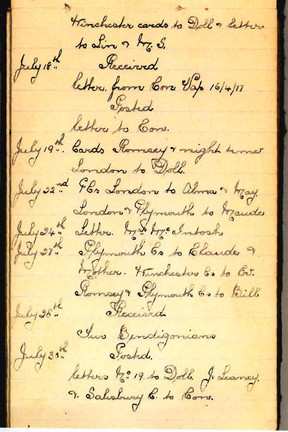 Winchester cards to Doll & letter
to Lin & M. S.
July 18th Received
letter from Con 16/4/17
Posted
letter to Con.
July 19th Cards Romsey & night time
London to Doll.
July 22nd P Cs London to Alma & May
London & Plymouth to Maude
July 24th Letter. Mrs McIntosh
July 27th Plymouth Cs to Claude &
Mother. Winchester Cs to
Romsey & Plymouth Cs to Bill
July 28th Received
Two Bendigonians
July 30th Posted.
letters No 19 to Doll. J. Leaney.
& Salisbury C. to Con.